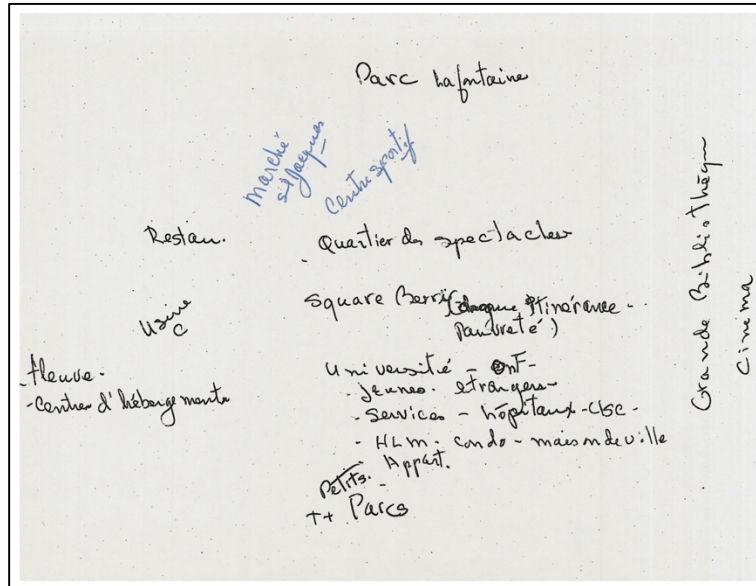 Parc Lafontaine
Marché
St Jacques
Centre sportif
Restau.
Quartier des spectacles
Square Berri (drogue itinérance -
pauvreté)
Usine
C
- fleuve -
- Centres d'hébergements
Université - ONF -
- jeunes. étrangers -
- Services - hôpitaux - CLSC -
- HLM - condo - maison de ville
Appart.
Petits
++ Parcs
Grande Bibliothèque
Cinema